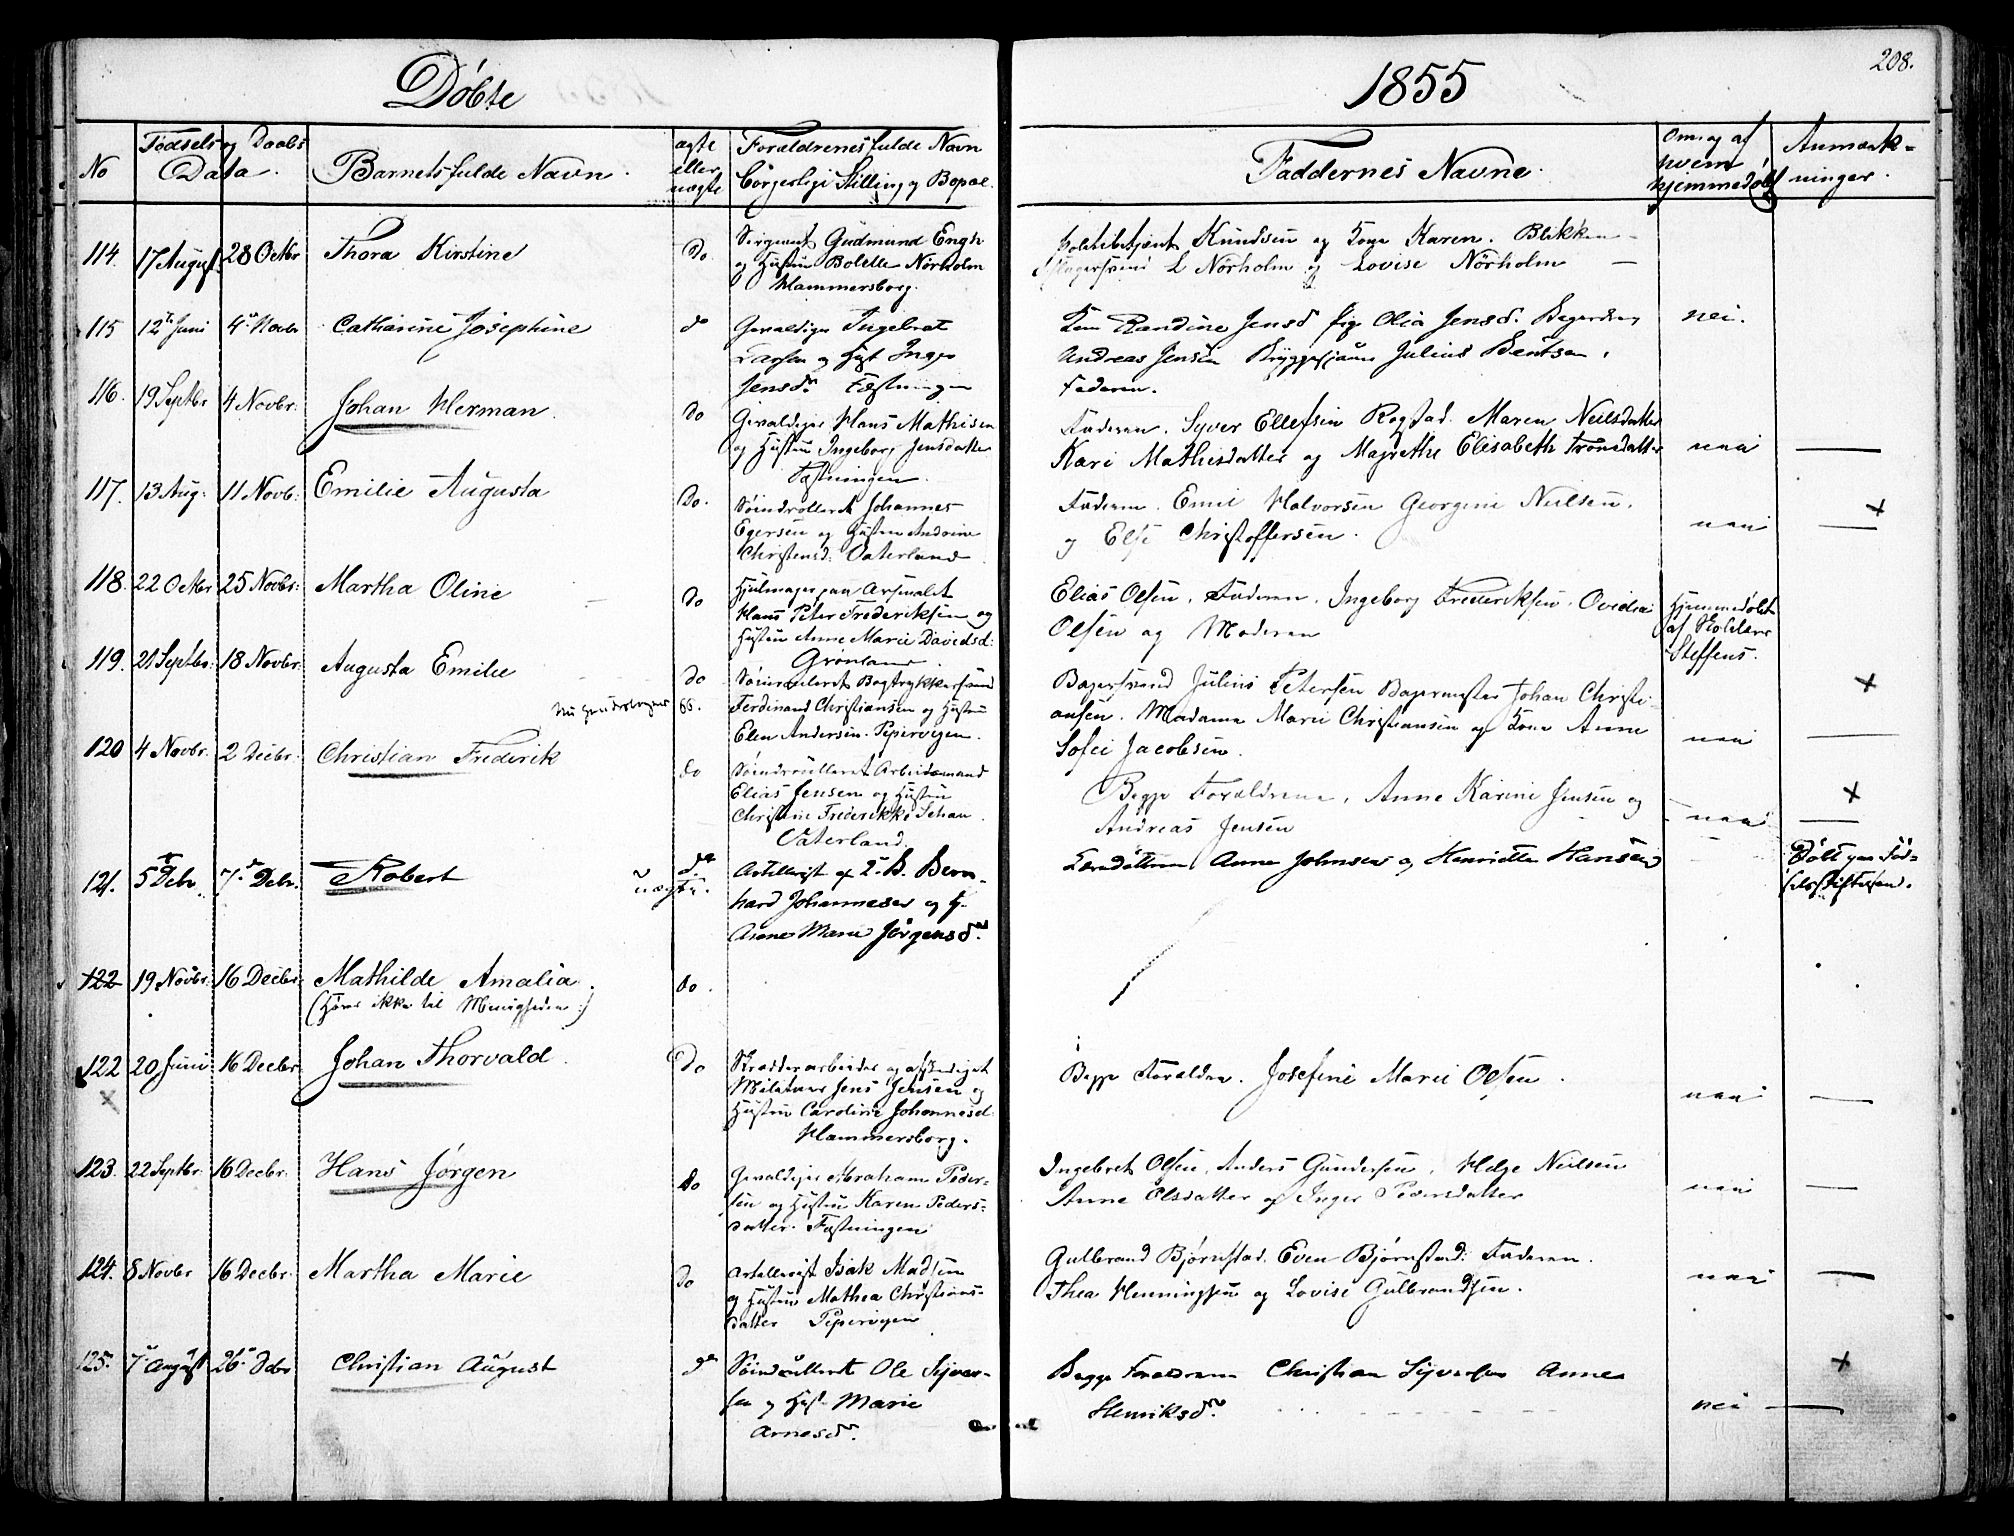 Döbte
1855
208.
No
Fødsels og Daabs
Data.
Barnets fulde Navn.
ægte
eller
uægte
Forældrenes fulde Navn
borgerlige Stilling og Bopæl.
Faddernes Navne.
Om og af
hvem
hjemmedøbt
Anmærk-
ninger.
114. 17 August 28 Octbr Thora Kirstine Do.
Sergeant Gudmund Engh
og Hustru Bolette Nörholm
Hammersborg.
Politibetjent Knudsen og Kone Karen. Blikken-
slagersvend L Nörholm og Lovise Nörholm —
115 12te Juni 4de Novbr Catharine Josephine do
Gevaldiger Ingebret
Larsen og Hust Inger
Jensdr. Fæstningen
Kone Randine Jensd pige Olia Jensd. Bagerdreng
Andreas Jensen Bryggesjauer Julius Bentsen,
Faderen.
nei.
116. 19 Septbr 4 Novbr: Johan Herman. Do
Gevaldiger Hans Mathisen
og Hustru Ingeborg Jensdatter
Fæstningen.
Faderen. Syver Ellefsen Rogstad. Maren Neilsdatter
Kari Mathisdatter og Magrethe Elisabeth Tronsdatter
naai —
117. 13 Aug: 11 Novb: Emilie Augusta Do.
Søindrolleret Johannes
Egersen og Hustru Andrine
Christensd: Vaterland
Faderen. Emil Halvorsen Georgine Neilsen,
og Else Christoffersen.
naai — x
118. 22 Octbr 25 Novbr: Martha Oline — Do
Hjulmager paa Arsenalet
Hans Peter Frederiksen og
Hustru Anne Marie Davidsd:
Grønland.
Elias Olsen, Faderen, Ingeborg Frederiksen, Ovidia
Olsen og Moderen
Hjemmedøbt
af Klokker
Steffens.
119. 21 Septbr: 18 Novbr: Augusta Emilie do
Søinrouleret Bogtrykkersvend
Ferdinand Christiansen og Hustru
Elen Andersen. Pipervigen.
Bagersvend Julius Petersen Bagermester Johan Christi-
ansen. Madame Marie Christiansen og Kone Anne
Sofie Jacobsen.
naai — x
120 4 Novbr. 2 Decbr: Christian Frederik do
Søindroulleret Arbeidsmand
Elias Jensen og Hustru
Christine Frederikke Schau.
Vaterland.
Begge Forældrene, Anne Karine Jensen og
Andreas Jensen
naai — x
121. 5te Debr 7de Debr. Robert do.
uægte.
Artillerist af 2. B. Bern-
hard Johannesen og H.
Anne Marie Jörgensdr.
Anne Johnsen og Henriette Hansen
Døbt paa Fød-
selsstiftelsen.
122 19 Novbr: 16 Decbr: Mathilde Amalia. do.
(Hører ikke til Menigheden:)
122 20 Juni 16 Decbr Johan Thorvald. Do
x
og afskediget
Militaer Jens Jensen og
Hustru Caroline Johannesd:
Hammersborg.
Begge Forældre. Josefine Marie Olsen.
naai —
123. 22 Septbr. 16 Decbr. Hans Jørgen do
Gevaldiger Abraham Peder-
sen og Hustru Karen Peders-
datter. Fæstningen
Ingebret Olsen, Anders Gundersen, Helge Neilsen
Anne Olsdatter og Inger Pedersdatter
naai —
124. 8 Novbr 16 Decbr. Martha Marie do
Artillerist Isak Madsen
og Hustru Mathea Christians-
datter Pipervigen
Gulbrand Bjørnstad, Even Bjørnstad: Faderen.
Thea Henningsen og Lovise Gulbrandsen.
naai —
125. 7de August 26de Debr Christian August do
Søindrulleret Ole Syver-
sen og Hust Marie
Arnesdr.
Begge Forældrene Christian Syversen Anne
Henriksdr.
nei — x